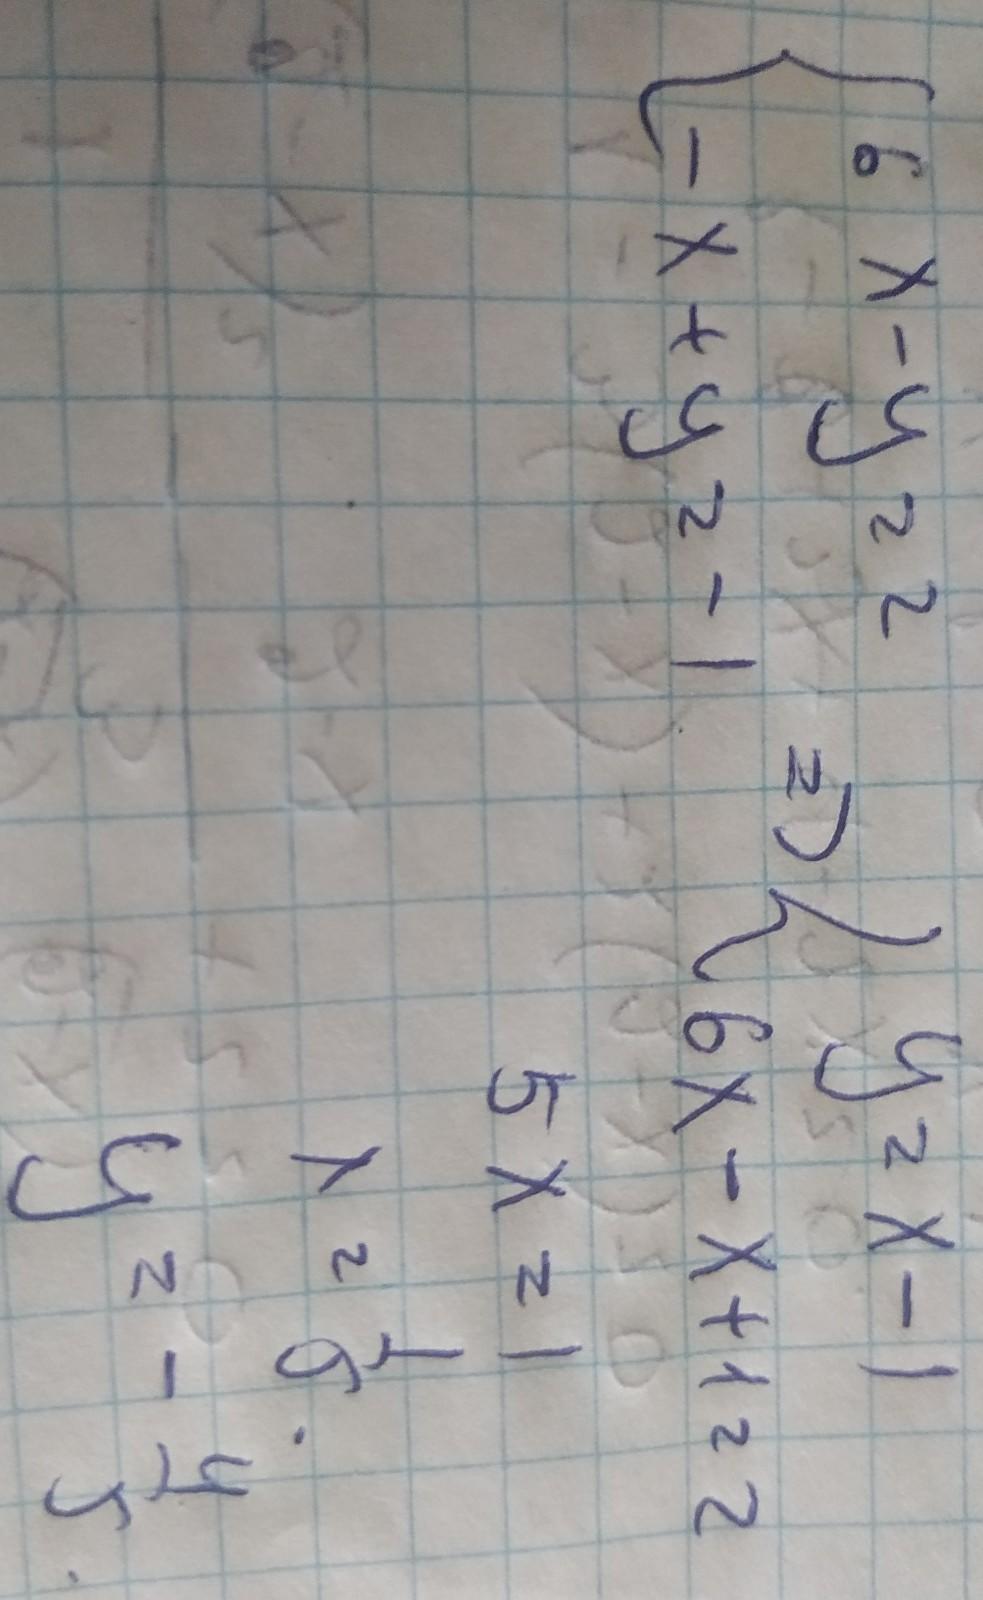 6x-y=2
-x+y=-1
=>
y=x-1
6x-x+1=2
5x=1
x=1/5.
y=-4/5.